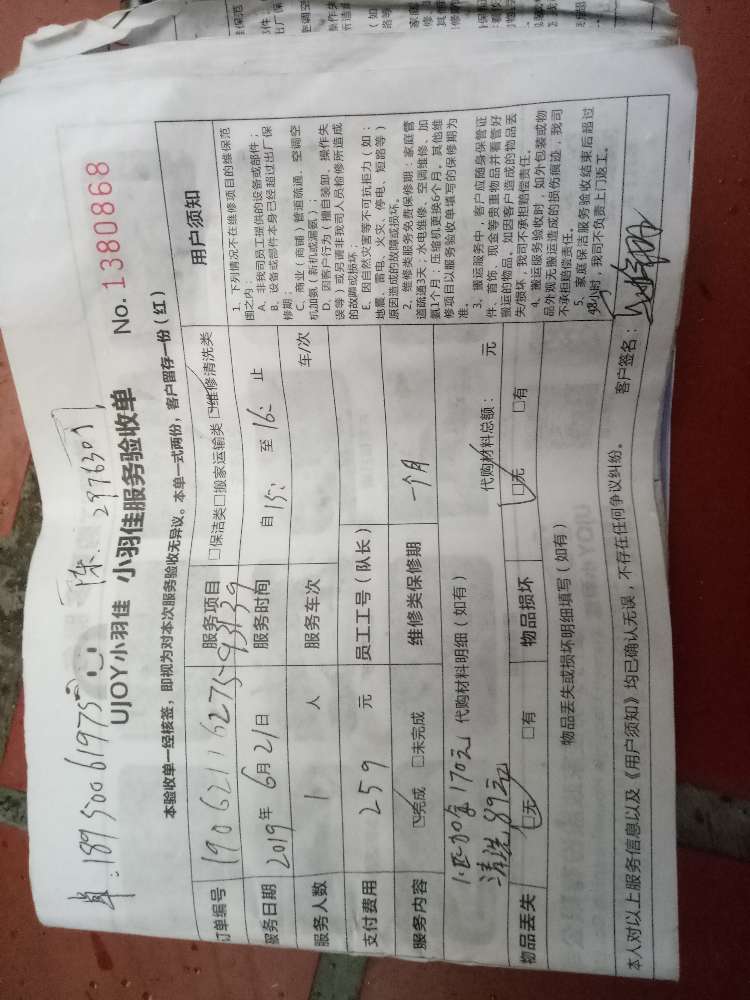 单:18950061975 陈 2976309
UJOY小羽佳 小羽佳服务验收单 No. 1380868
本验收单一经核签，即视为对本次服务验收无异议。本单一式两份，客户留存一份（红）
订单编号 服务项目 □保洁类□搬家运输类☑维修清洗类
服务日期 2019年6月21日 服务时间 自15: 至16: 止
服务人数 1 人 服务车次 车/次
支付费用 259 元 员工工号（队长）
服务内容 ☑完成 □未完成 维修类保修期 一个月
代购材料明细（如有） 代购材料总额： 元
170元
清洗89元
物品丢失 ☑无 □有 物品损坏 ☑无 □有
物品丢失或损坏明细填写（如有）
用户须知
1、下列情况不在维修项目的维保范
围之内：
A、非我司员工提供的设备或部件；
B、设备或部件本身已经超过出厂保
修期；
C、商业（商铺）管道疏通、空调空
机加氨（新机或漏氨）；
D、因客户行为（擅自装卸、操作失
误等）或另请非我司人员检修所造成
的故障或损坏；
E、因自然灾害等不可抗拒力（如：
地震、雷电、火灾、停电、短路等）
原因造成的故障或损坏。
2、维修类服务免费保修期：家庭管
道疏通3天；水电维修、空调维修、加
氨1个月；压缩机更换6个月。其他维
修项目以服务验收单填写的保修期为
准。
3、搬运服务中，客户应随身保管证
件、首饰、现金等贵重物品并看管好
搬运的物品。如因客户造成的物品丢
失/损坏，我司不承担赔偿责任。
4、搬运服务验收时，如外包装或物
品外观无搬运造成的损伤痕迹，我司
不承担赔偿责任。
5、家庭保洁服务验收结束后超过
48小时，我司不负责上门返工。
本人对以上服务信息以及《用户须知》均已确认无误，不存在任何争议纠纷。 客户签名：